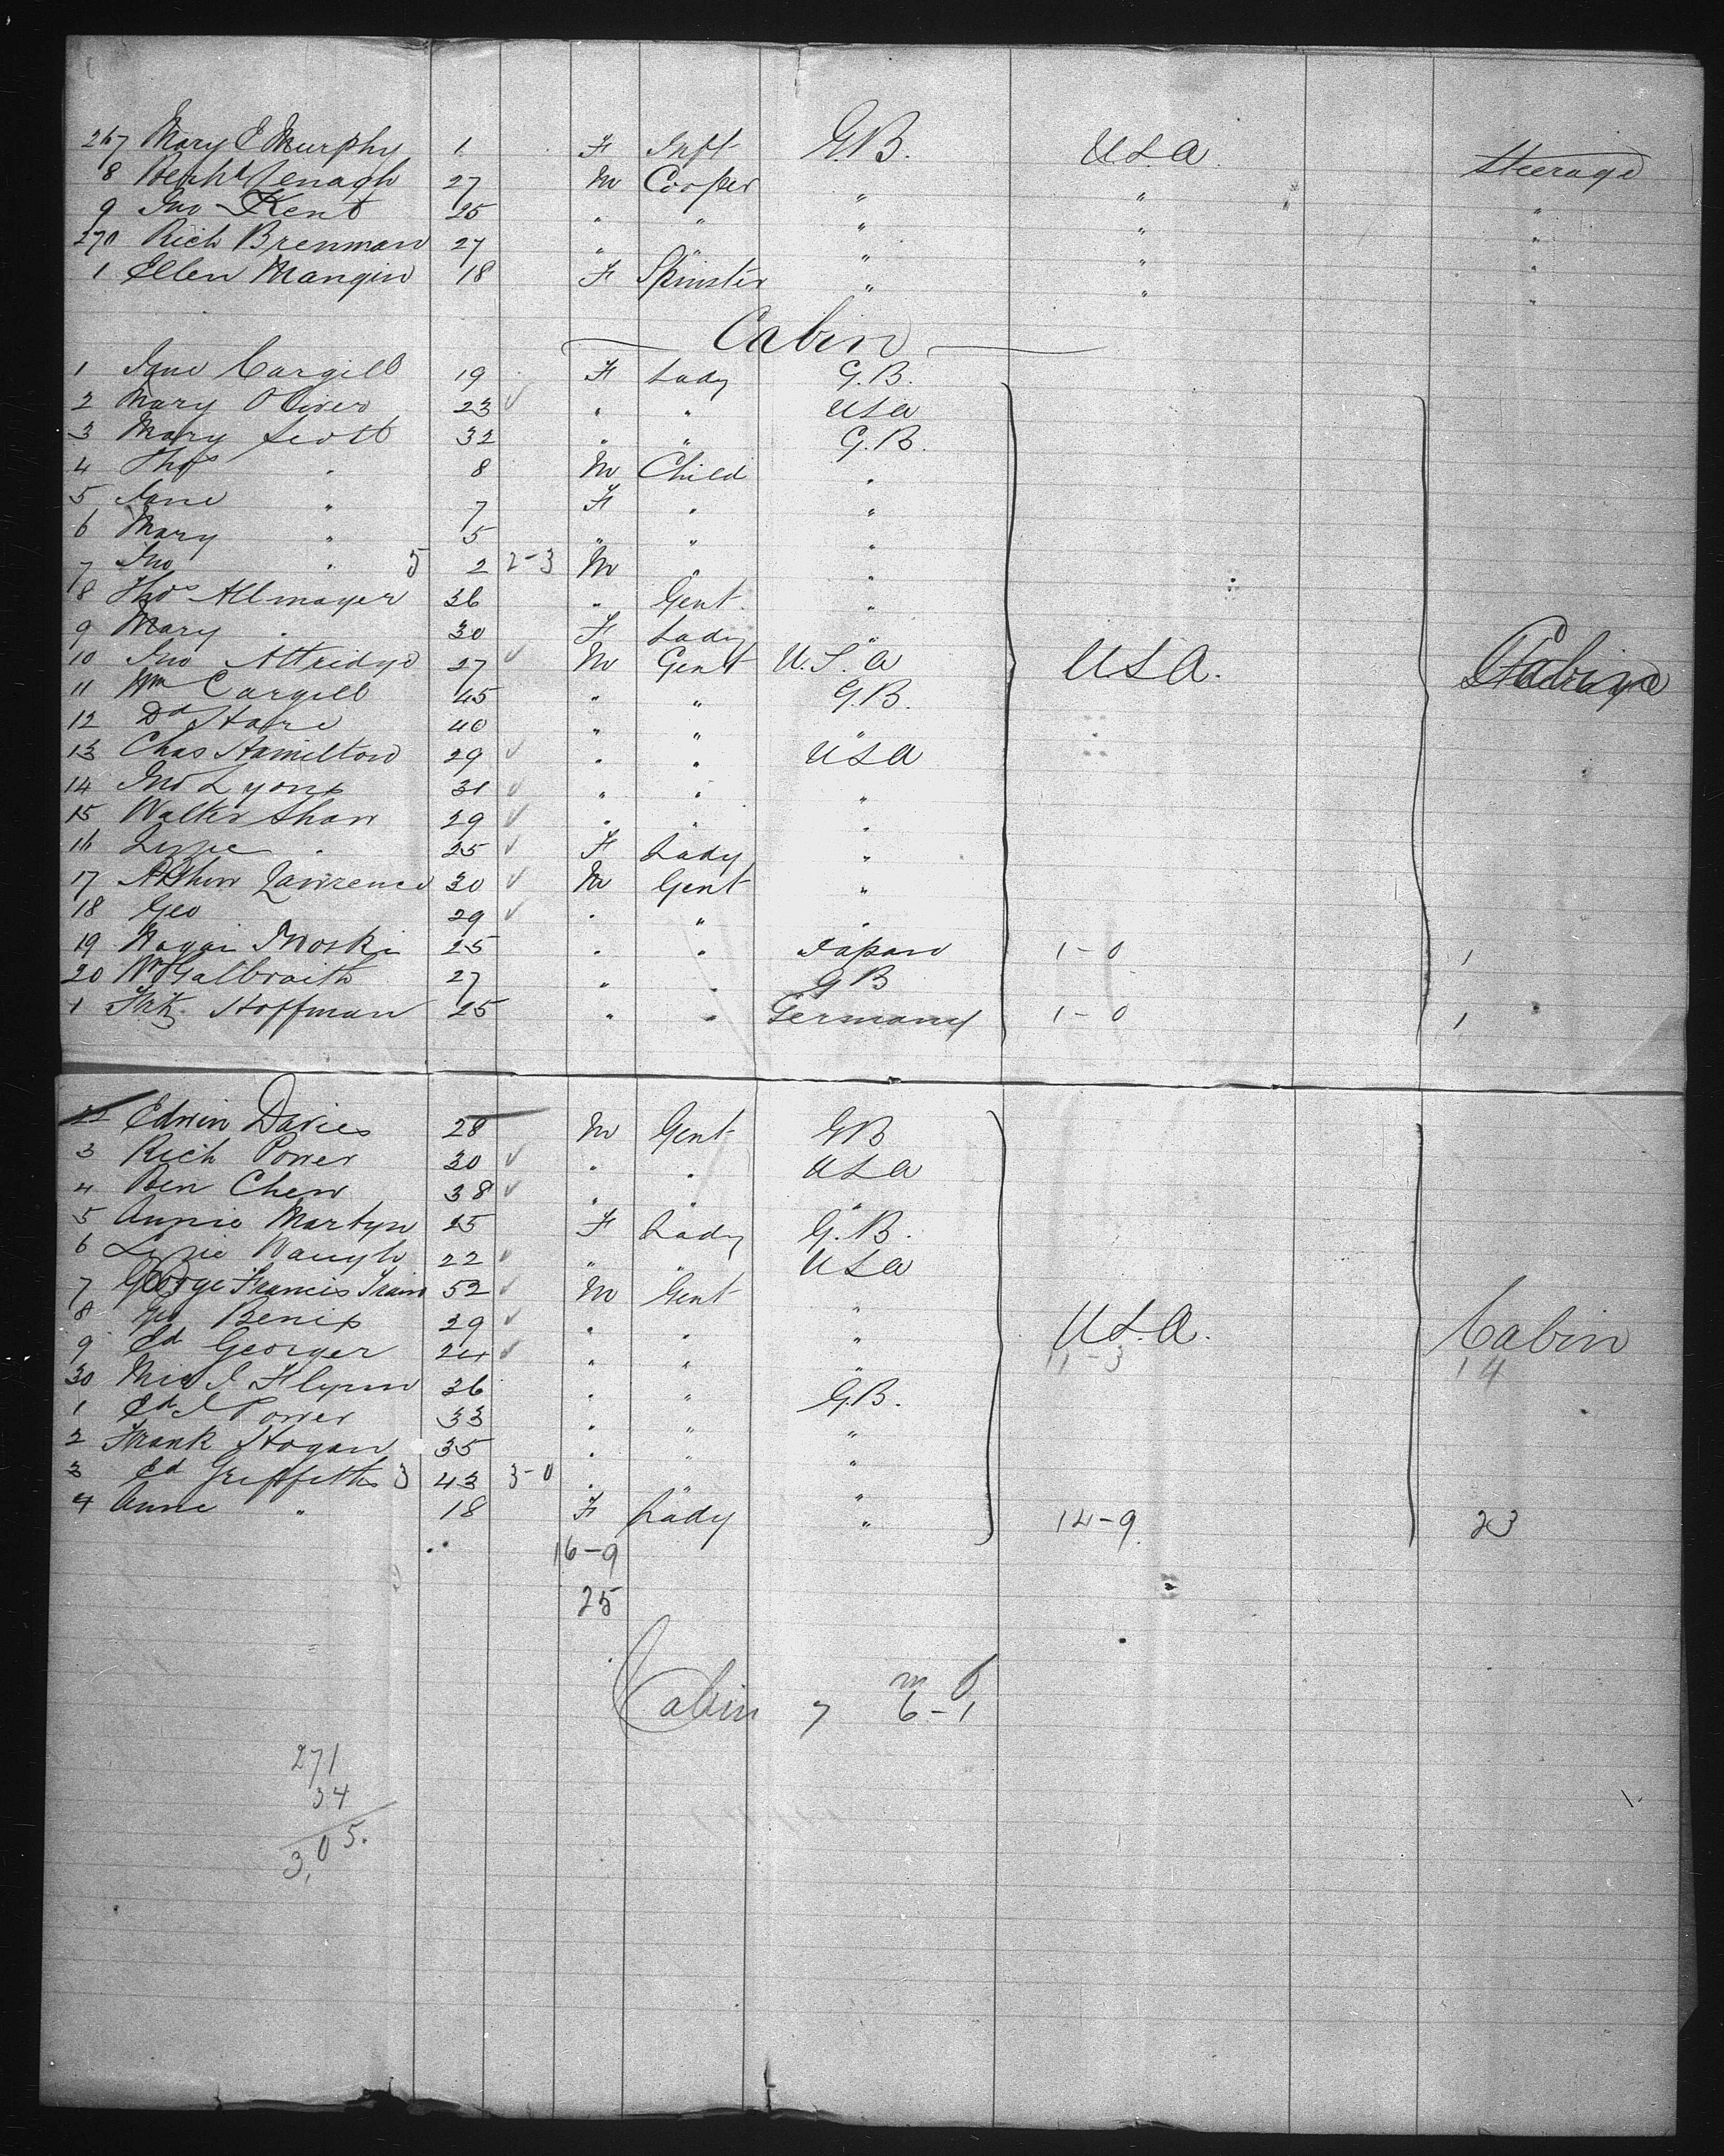 267 Mary E Murphy 1 F Inft G.B. USA Steerage
8 27 M Cooper " " "
9 Jno Kent 25 " " " " "
270 Rich Brennan 27 " " " " "
1 Ellen Mangin 18 F Spinster " " "
Cabin
1 Jane Cargill 19 F Lady G.B.
2 Mary Oliver 23 ✓ " " USA
3 Mary Scott 32 " " G.B.
4 Thos " 8 M Child "
5 Jane " 7 F " "
6 Mary " 5 " " "
7 Jno " 5 2 2-3 M " "
8 Thos Allmayer 36 " Gent "
9 Mary " 30 F Lady "
10 Jno Attridge 27 ✓ M Gent U.S.A USA.
11 Wm Cargill 45 " " G.B.
12 Dd Hare 40 " " "
13 Chas Hamilton 29 ✓ " " USA
14 Jno Lyons 31 ✓ " " "
15 Walter Shaw 29 ✓ " " "
16 " 25 ✓ F Lady "
17 Lawrence 30 ✓ M Gent "
18 Geo 29 ✓ " " "
19 Nagai Iwoski 25 " " Japan 1-0 1
20 Wm Galbraith 27 " " GB
1 Frk Hoffman 25 " " Germany 1-0 1
22 Edwin Davies 28 M Gent GB
3 Rich Power 30 ✓ " " USA
4 Ben Chew 38 ✓ " " "
5 Annie Martyn 25 F Lady G.B.
6 Lizzie Waugh 22 ✓ " " USA
7 George Francis Train 52 ✓ M Gent "
8 Geo 29 ✓ " " " U.S.A. Cabin
9 Ed Georger 24 ✓ " " " 11-3 14
30 J Flynn 36 " " G.B.
1 Ed J Power 33 " " "
2 Frank Hogan 35 " " "
3 Ed Griffiths 3 43 3-0 " " "
4 Anne " 18 F Lady " 14-9 23
16-9
25
m f
Cabin 7 6-1
271
34
305.